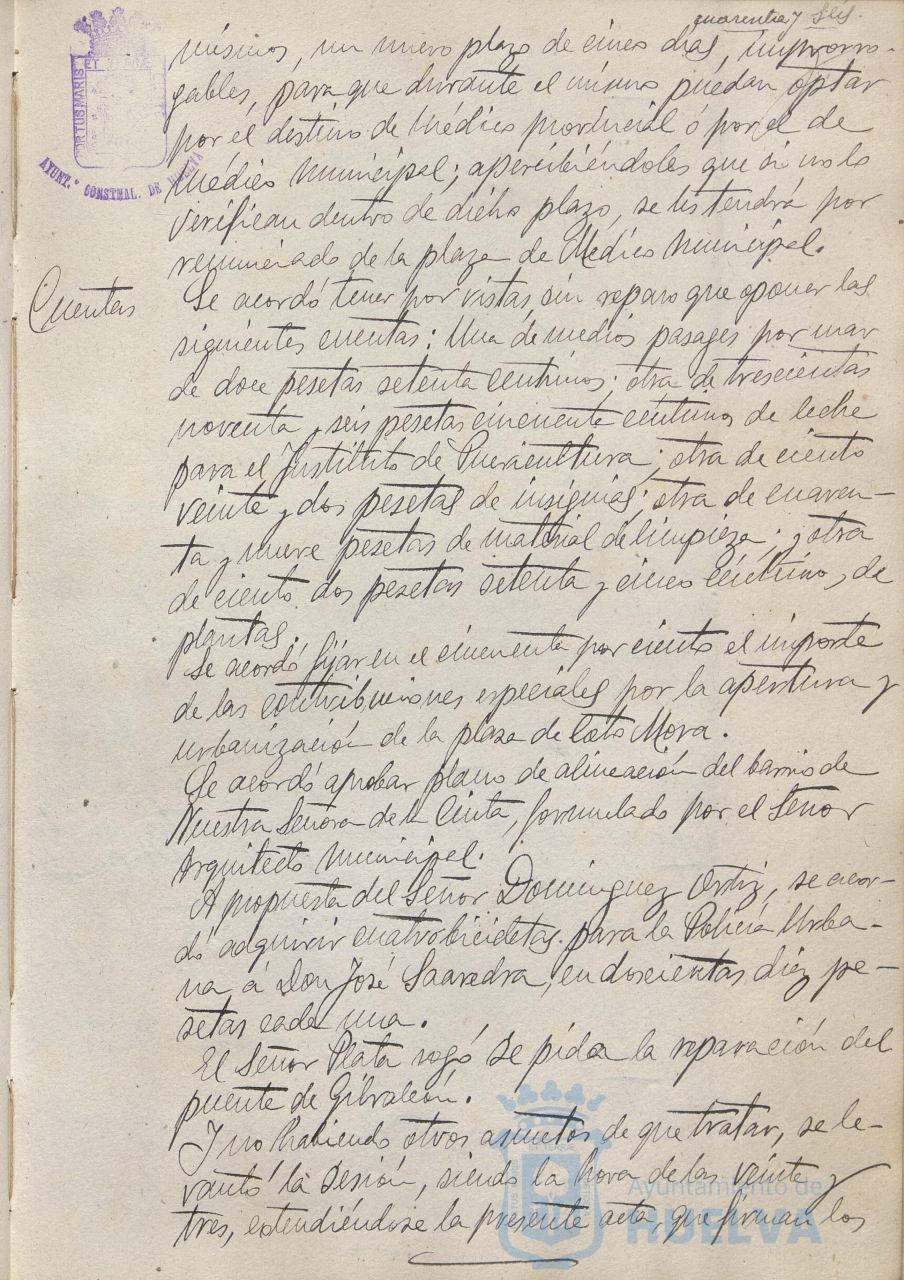 cuarenta y seis.
mismos, un nuevo plazo de cinco días, improrro-
gables, para que durante el mismo puedan optar
por el destino de Médico provincial ó por el de
Médico Municipal; apercibiéndoles que si no lo
verifican dentro de dicho plazo, se les tendrá por
renunciado de la plaza de Médico Municipal.
Cuentas
Se acordó tener por vistas sin reparo que oponer las
siguientes cuentas: Una de medios pasages por mar
de doce pesetas setenta centimos; otra de trescientas
noventa y seis pesetas cincuenta centimos de leche
para el Instituto de Puericultura; otra de ciento
veinte y dos pesetas de insignias; otra de cuaren-
ta y nueve pesetas de material de limpieza; y otra
de ciento dos pesetas setenta y cinco centimos, de
plantas.
Se acordó fijar en el cincuenta por ciento el importe
de las contribuciones especiales por la apertura y
urbanización de la plaza de Coto Mora.
Se acordó aprobar plano de alineación del barrio de
Nuestra Señora de la Cinta, formulado por el Señor
Arquitecto Municipal.
A propuesta del Señor Dominguez Ortiz, se acor-
dó adquirir cuatro bicicletas para la Policía Urba-
na á Don José Saavedra, en doscientas diez pe-
setas cada una.
El Señor Plata rogó se pida la reparación del
puente de Gibraleón.
Y no habiendo otros asuntos de que tratar, se le-
vantó la sesión, siendo la hora de las veinte y
tres, extendiéndose la presente acta, que firman los
ET
PORTUS MARIS
AYUNT.º CONSTNAL. DE HUELVA
Ayuntamiento de
HUELVA